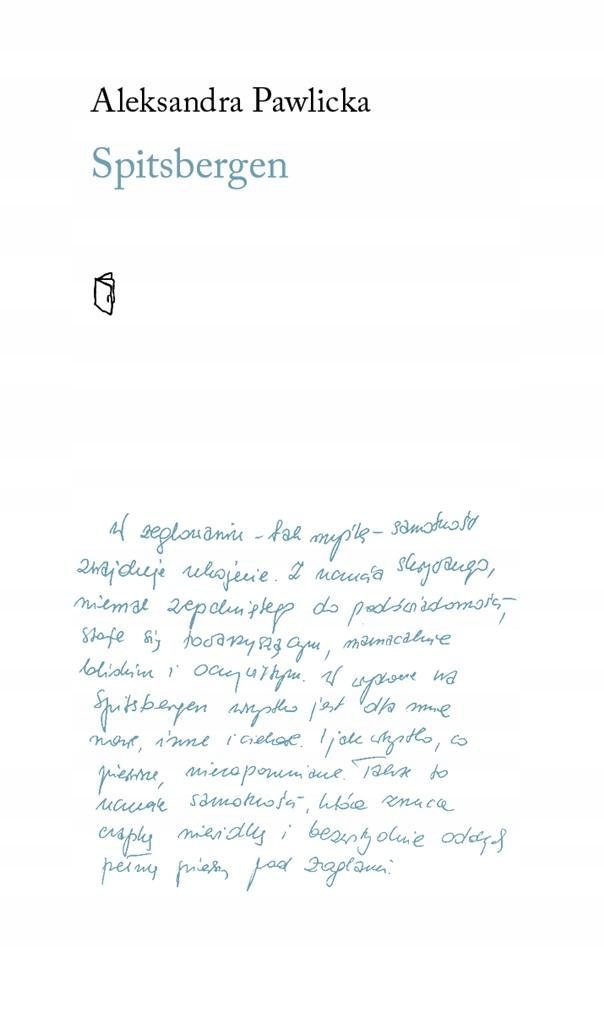 Aleksandra Pawlicka
Spitsbergen
W żeglowaniu – tak myślę – samotność
znajduje ukojenie. Z uczucia skrytego,
niemal zepchniętego do podświadomości,
staje się towarzyszącym, namacalnie
bliskim i oczywistym. W wyprawie na
Spitsbergen wszystko jest dla mnie
nowe, inne i ciekawe. I jak wszystko, co
pierwsze, niezapomniane. Także to
uczucie samotności, która zrzuca
czapkę niewidkę i bezwstydnie oddycha
pełną piersią pod żaglami.